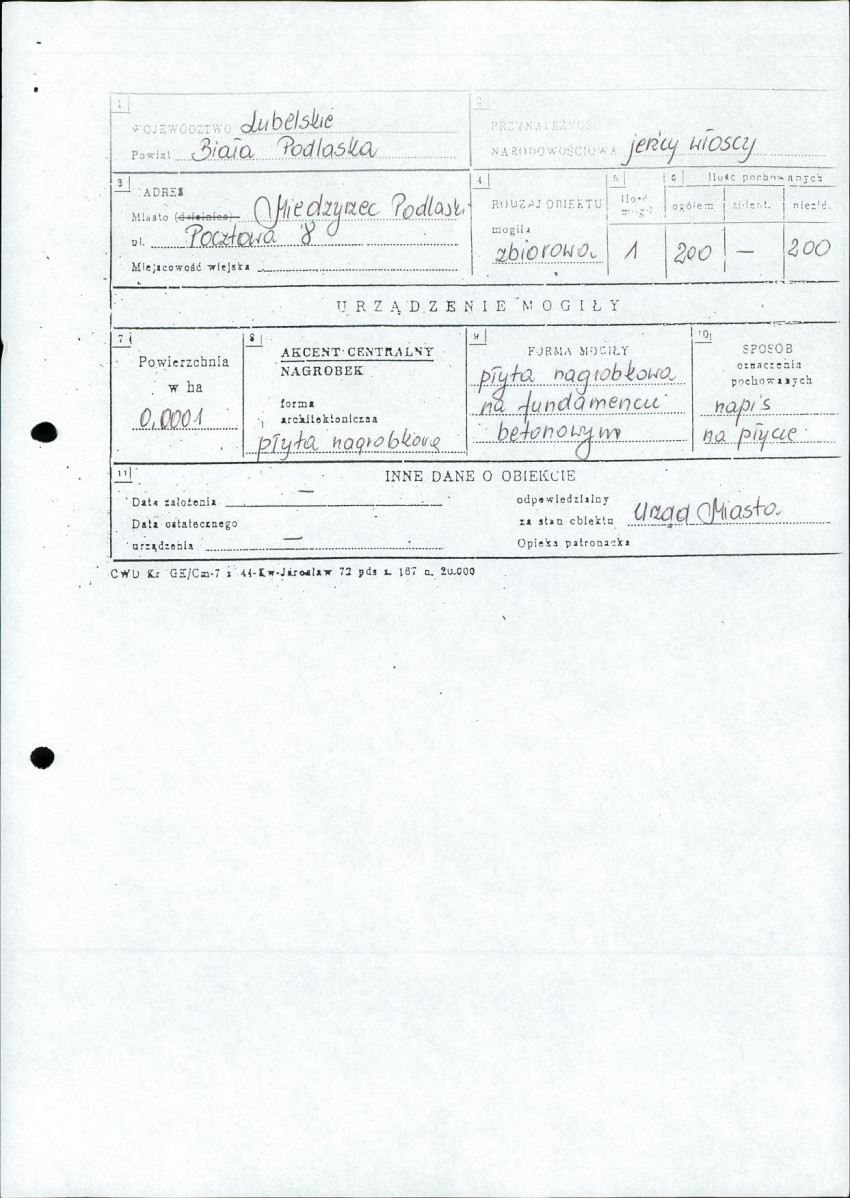 1
WOJEWÓDZTWO Lubelskie
Powiat Biała Podlaska
2
PRZYNALEŻNOŚĆ
NARODOWOŚCIOWA jeńcy włoscy
3
ADRES
Miasto (dzielnica) Miedzyrzec Podlaski
ul. Pocztowa 8
Miejscowość wiejska
4
RODZAJ OBIEKTU
mogiła
zbiorowa
5
Ilość
mogił
1
6 Ilość pochowanych
ogółem zident. niezid.
200 — 200
URZĄDZENIE MOGIŁY
7
Powierzchnia
w ha
0,0001
8
AKCENT CENTRALNY
NAGROBEK
forma
architektoniczna
płyta nagrobkowa
9
FORMA MOGIŁY
płyta nagrobkowa
na fundamencie
betonowym
10
SPOSÓB
oznaczenia
pochowanych
napis
na płycie
11
INNE DANE O OBIEKCIE
Data założenia —
Data ostatecznego
urządzenia —
odpowiedzialny
za stan obiektu Urząd Miasta
Opieka patronacka
CWD Kr GK/Cm-7 i 44-Kw-Jarosław 72 pds z. 167 n. 20.000